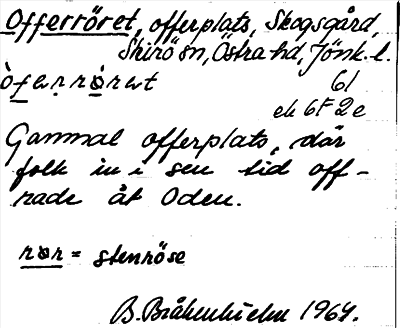 Offerröret, offerplats, Skogsgård,
Skirö sn, Östra hd, Jönk. l.
òfer,rò̀ret
61
ek 6F 2e
Gammal offerplats, där
folk in i sen tid off-
rade åt Oden.
rör = stenröse
B. Bråkenhielm 1964.